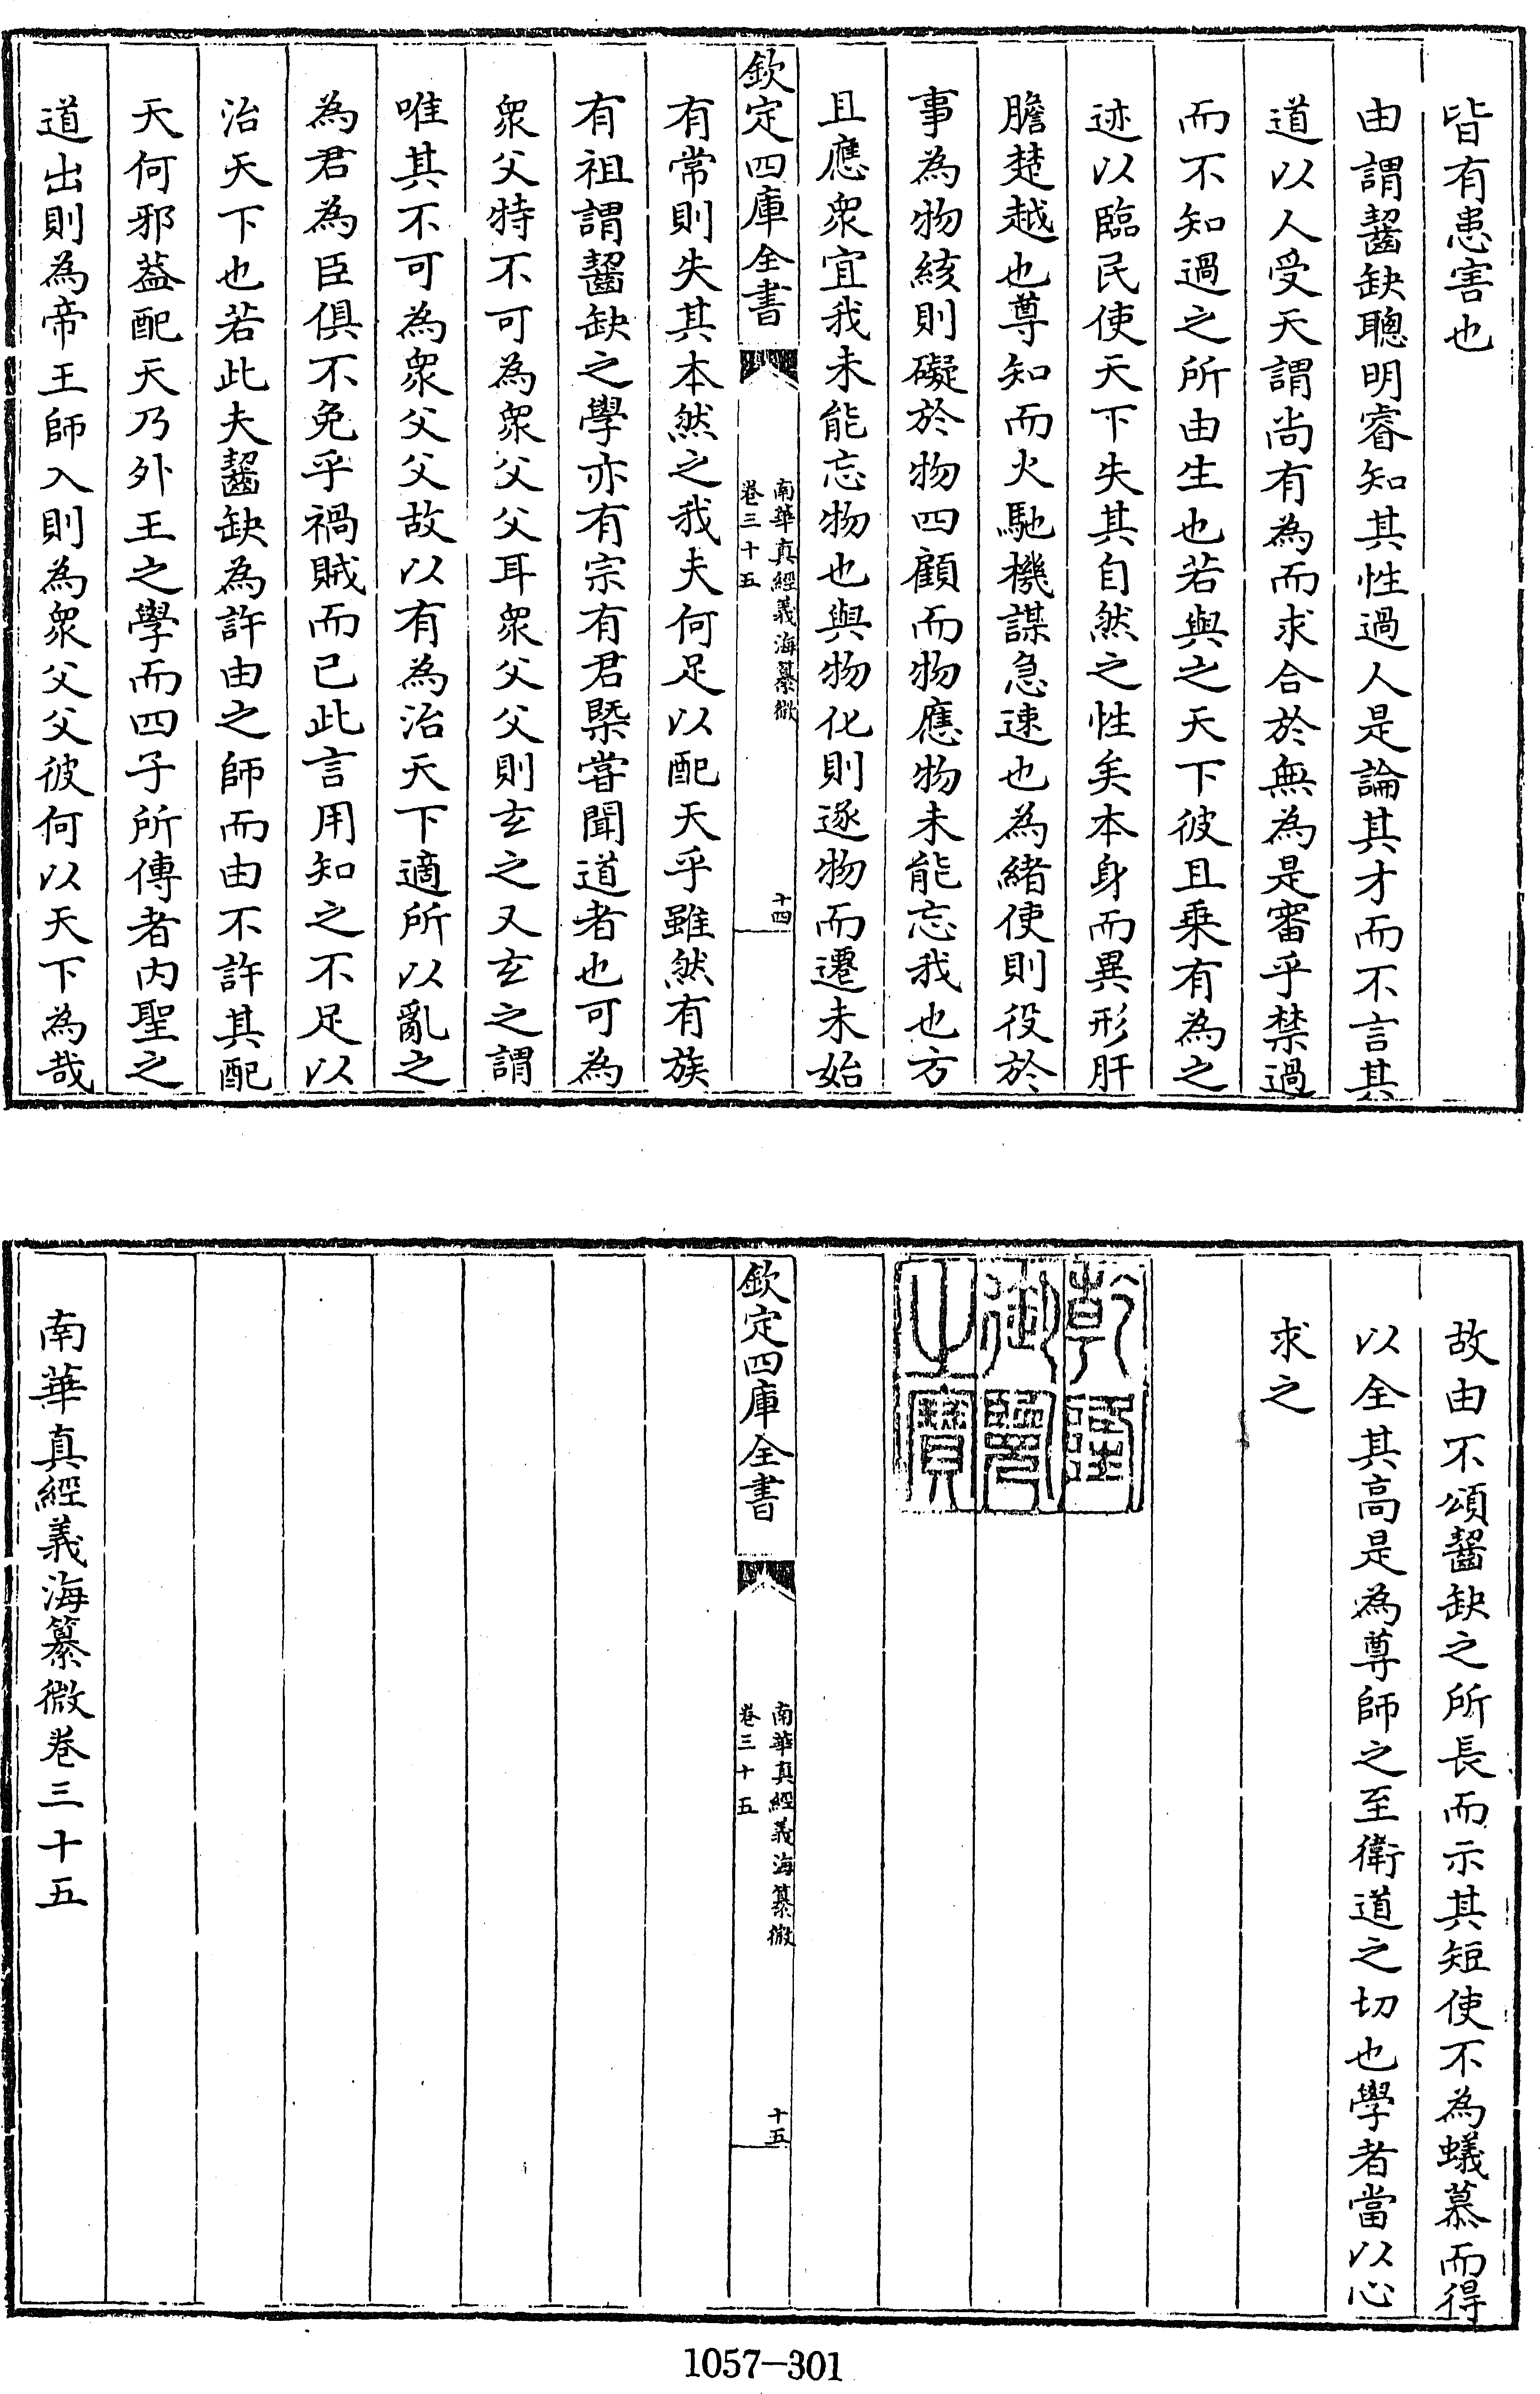 皆有患害也
由謂齧缺聰明睿知其性過人是論其才而不言其
道以人受天謂尚有為而求合於無為是審乎禁過
而不知過之所由生也若與之天下彼且乗有為之
迹以臨民使天下失其自然之性矣本身而異形肝
膽楚越也尊知而火馳機謀急速也為緒使則役於
事為物絃則礙於物四顧而物應物未能忘我也方
且應衆宜我未能忘物也與物化則逐物而遷未始
欽定四庫全書
南華真經義海纂微
卷三十五
十四
有常則失其本然之我夫何足以配天乎雖然有族
有祖謂齧缺之學亦有宗有君槩甞聞道者也可為
衆父特不可為衆父父耳衆父父則玄之又玄之謂
唯其不可為衆父父故以有為治天下適所以亂之
為君為臣俱不免乎禍賊而已此言用知之不足以
治天下也若此夫齧缺為許由之師而由不許其配
天何邪葢配天乃外王之學而四子所傳者内聖之
道出則為帝王師入則為衆父父彼何以天下為哉
故由不頌齧缺之所長而示其短使不為蟻慕而得
以全其高是為尊師之至衛道之切也學者當以心
求之
乾隆
御覽
之寶
欽定四庫全書
南華真經義海纂微
卷三十五
十五
南華真經義海纂微卷三十五
1057-301